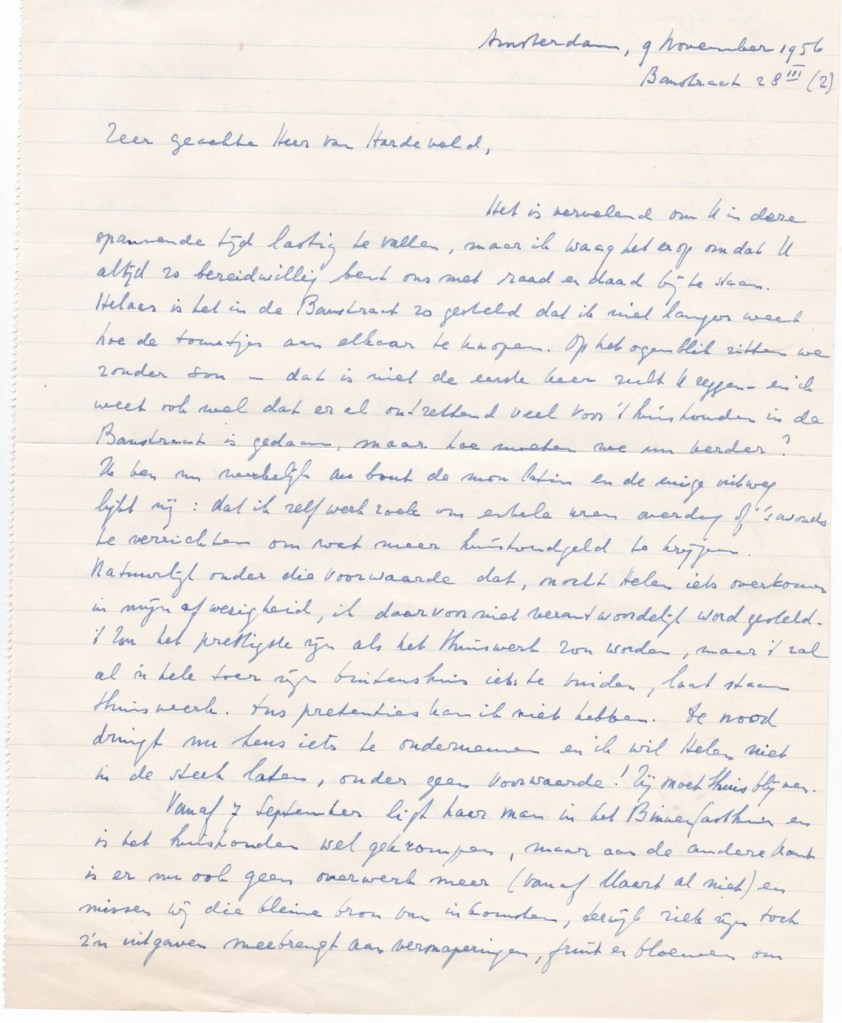 Amsterdam, 9 November 1956
Banstraat 28 III (Z)
Zeer geachte Heer van Hardeveld,
Het is vervelend om U in deze
spannende tijd lastig te vallen, maar ik waag het erop omdat U
altijd zo bereidwillig bent ons met raad en daad bij te staan.
Helaas is het in de Banstraat zo gesteld dat ik niet langer weet
hoe de touwtjes aan elkaar te knopen. Op het ogenblik zitten we
zonder sou – dat is niet de eerste keer zult U zeggen – en ik
weet ook wel dat er al ontzettend veel voor 't huishouden in de
Banstraat is gedaan, maar hoe moeten we nu verder?
Ik ben nu werkelijk au bout de mon latin en de enige uitweg
lijkt mij: dat ik zelf werk zoek om enkele uren overdag of 's avonds
te verrichten om wat meer huishoudgeld te krijgen.
Natuurlijk onder die voorwaarde dat, mocht Helen iets overkomen
in mijn afwezigheid, ik daarvoor niet verantwoordelijk word gesteld.
't Zou het prettigste zijn als het thuiswerk zou worden, maar 't zal
al 'n hele toer zijn buitenshuis iets te vinden, laat staan
thuiswerk. Dus pretenties kan ik niet hebben. De nood
dringt nu heus iets te ondernemen en ik wil Helen niet
in de steek laten, onder geen voorwaarde! Zij moet thuis blijven.
Vanaf 7 September ligt haar man in het Binnengasthuis en
is het huishouden wel gekrompen, maar aan de andere kant
is er nu ook geen overwerk meer (vanaf Maart al niet) en
missen wij die kleine bron van inkomsten, terwijl ziek zijn toch
z'n uitgaven meebrengt aan versnaperingen, fruit en bloemen om